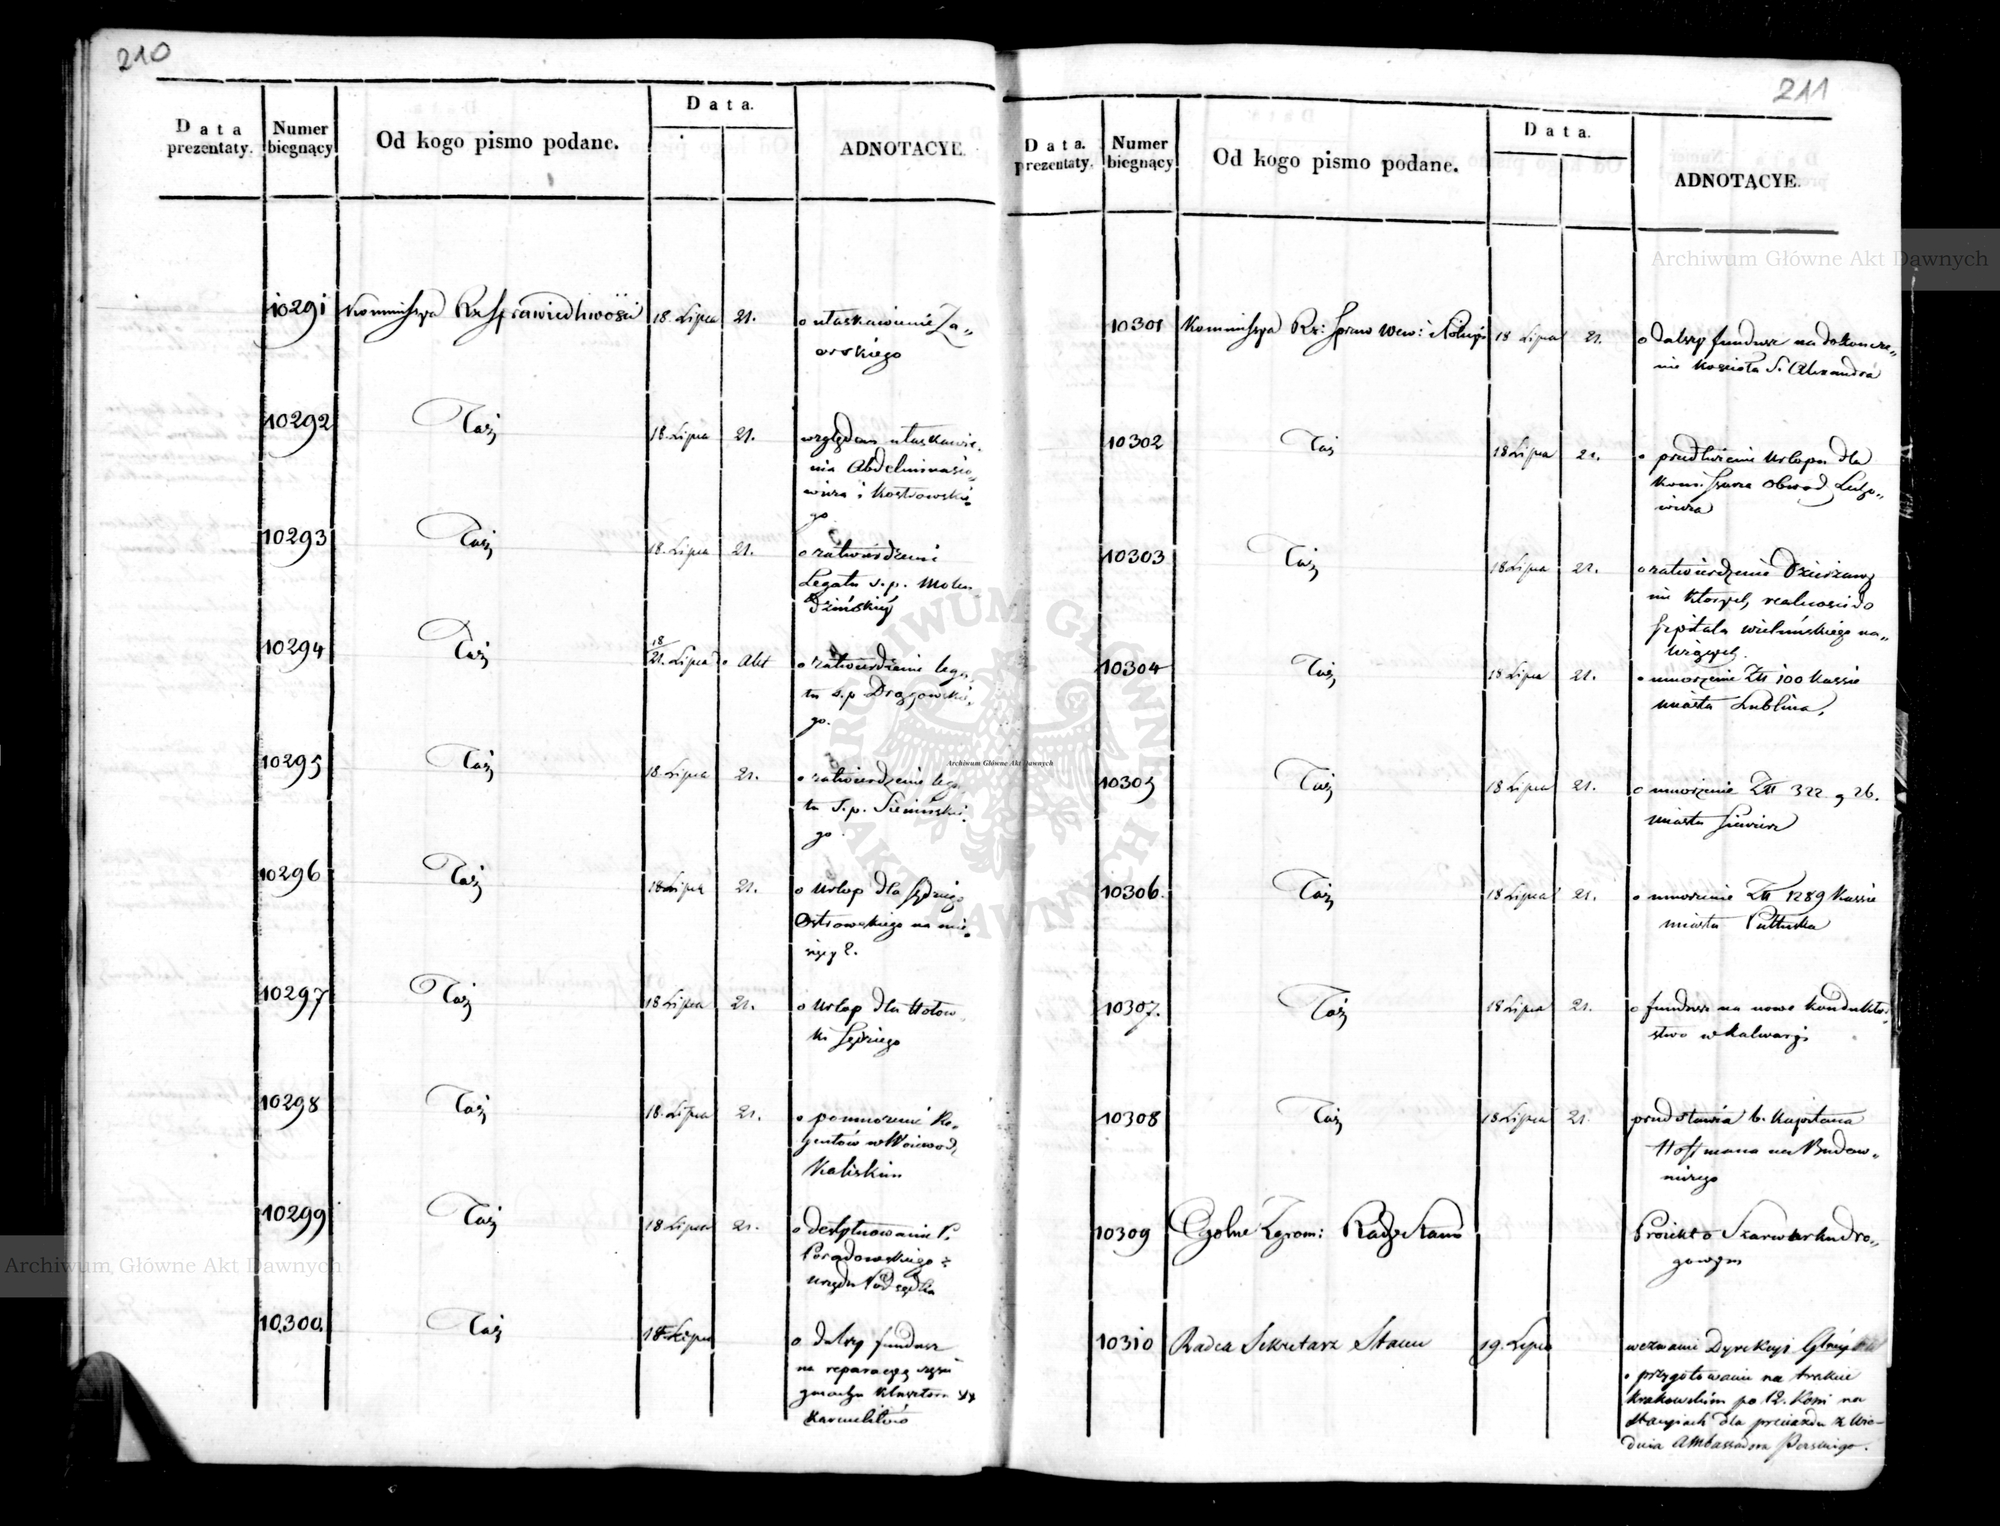 210
Data prezentaty. Numer biegnący Od kogo pismo podane. Data. ADNOTACYE.
10291 Kommissya Rz Sprawiedliwości 18 Lipca 21. o ułaskawienie Za„
orskiego
10292 Taż 18 Lipca 21. względem ułaskawie„
nia
wicza i Kostrowskie„
go
10293 Taż 18 Lipca 21. o zatwierdzenie
Legatu s. p.
10294 Taż 18/21. Lipca o zatwierdzenie lega„
tu s. p
go.
10295 Taż 18. Lipca 21. o zatwierdzenie lega
tu s. p. Siemińskie„
go.
10296 Taż 18 Lipca 21. o urlop dla Sędziego
Ostrowskiego na mie„
sięcy 2.
10297 Taż 18 Lipca 21. o urlop dla
Sędziego
10298 Taż 18. Lipca 21. o pomnożenie Re„
jentów w Woiewod,
Kaliskim
10299 Taż 18 Lipca 21. o destytuowanie P.
Poradowskiego z
urzędu Podsędka
10300. Taż 18. Lipca o dalszy fundusz
na reparacyą części
gmachu klasztoru XX
Karmelitów
211
Data. prezentaty. Numer biegnący Od kogo pismo podane. Data. ADNOTACYE.
10301 Kommissya Rz: Spraw Wew: i Policyi 18 Lipca 21. o dalszy fundusz na dokończe„
nie kościoła S. Alexandra
10302 Taż 18 Lipca 21. o przedłużenie urlopu dla
Kommissarza Obwod,
wicza
10303 Taż 18 Lipca 21. o zatwierdzenie Dzierżawy
nie których realności do
szpitala wieluńskiego na„
leżących.
10304 Taż 18 Lipca 21. o umorzenie Złł 100 Kassie
miasta Lublina,
10305 Taż 18 Lipca 21. o umorzenie Złł 322. g 26.
miasta Siewierz
10306. Taż 18 Lipca 21. o umorzenie Złł 1289 Kassie
miasta Pułtuska
10307. Taż 18 Lipca 21. o fundusz na nowe kondukto„
rstwo w Kalwaryi
10308 Taż 18 Lipca 21. przedstawia b. Kapitana
Hoffmana na Budow„
niczego
10309 Ogolne Zgrom: Rady Stanu Proiekt o Szarwarku dro„
gowym
10310 Radca Sekretarz Stanu 19. Lipca wezwanie Dyrekcyi Głnéy
o przygotowaniu na trakcie
Krakowskim po 12. Koni na
Stacyiach dla przeiazdu z Wie-
dnia Ambassadora Perskiego.
Archiwum Główne Akt Dawnych
Archiwum Główne Akt Dawnych
Archiwum Główne Akt Dawnych
ARCHIWUM GŁÓWNE AKT DAWNYCH